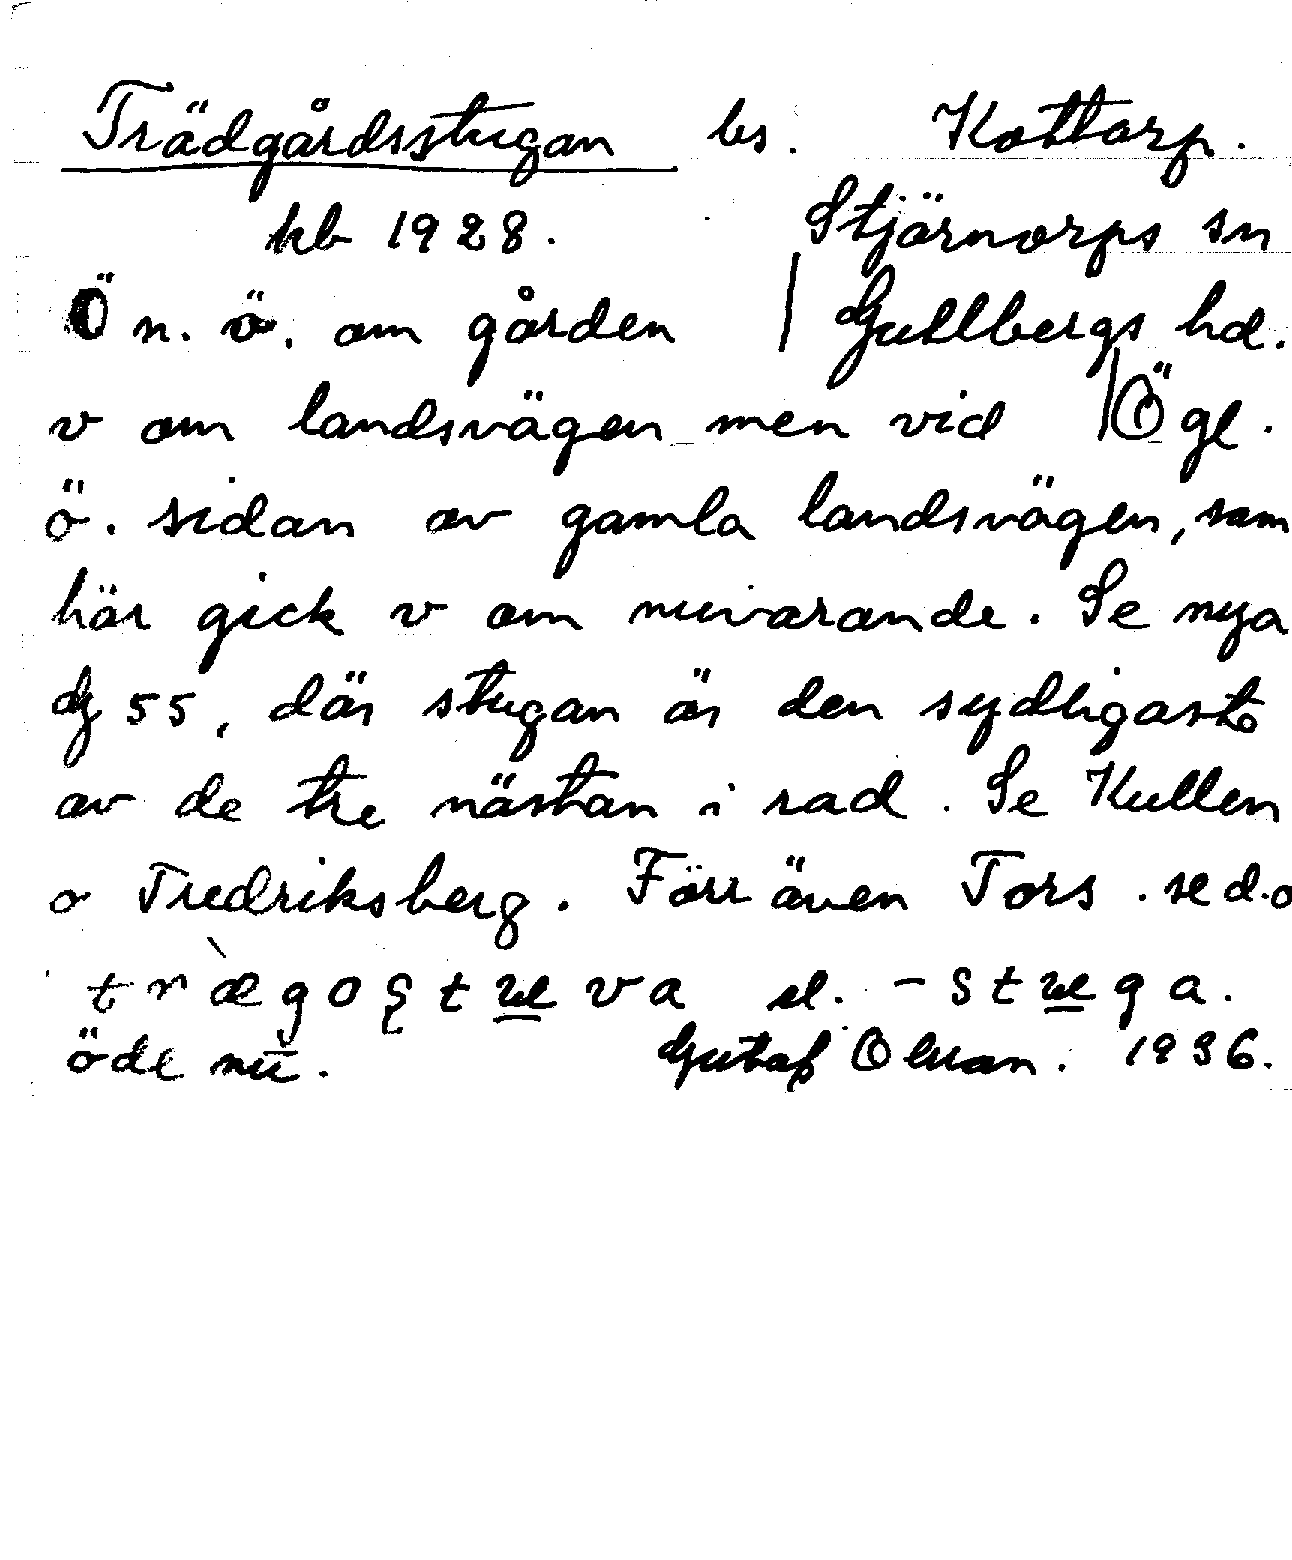 Trädgårdsstugan bs. Kottorp.
kb 1928. Stjärnorps sn
Ö n. ö. om gården Gullbergs hd.
v om landsvägen men vid Ögl.
ö. sidan av gamla landsvägen, som
här gick v om nuvarande. Se nya
dg 55, där stugan är den sydligaste
av de tre nästan i rad. Se Kullen
o Fredriksberg. Förr även Tors. se d.o
el.
öde nu. Gustaf Olsson. 1936.